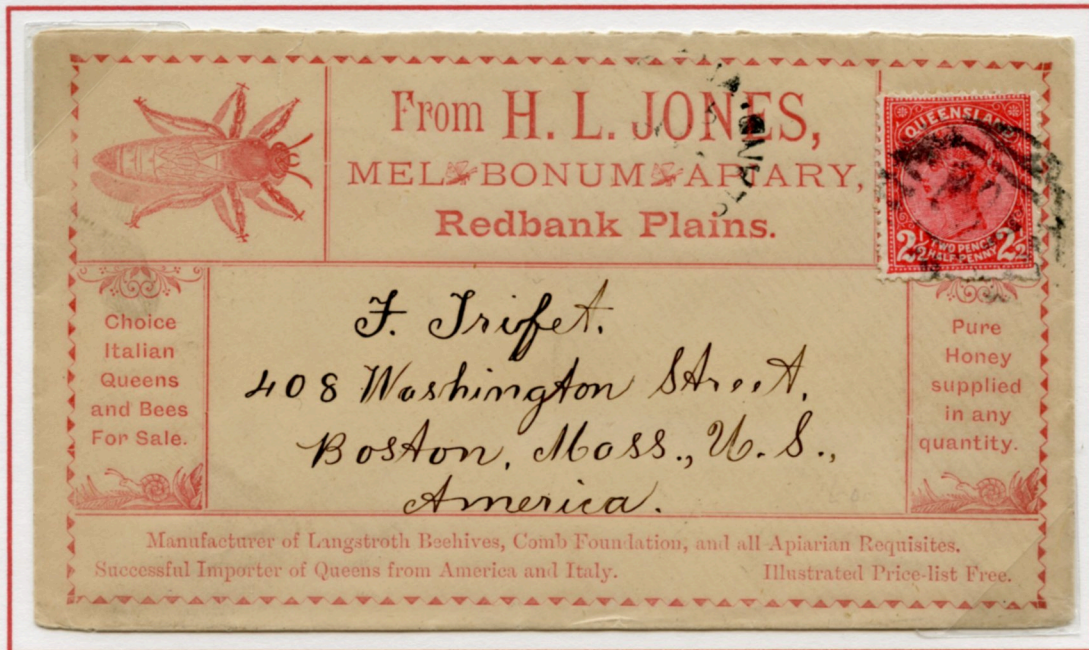 From H. L. JONES,
MEL BONUM APIARY,
Redbank Plains.
QUEENSLAND
2½ TWO PENCE HALF-PENNY 2½
Choice
Italian
Queens
and Bees
For Sale.
F. Trifet.
408 Washington Street,
Boston, Mass., U. S.,
America.
Pure
Honey
supplied
in any
quantity.
Manufacturer of Langstroth Beehives, Comb Foundation, and all Apiarian Requisites.
Successful Importer of Queens from America and Italy. Illustrated Price-list Free.